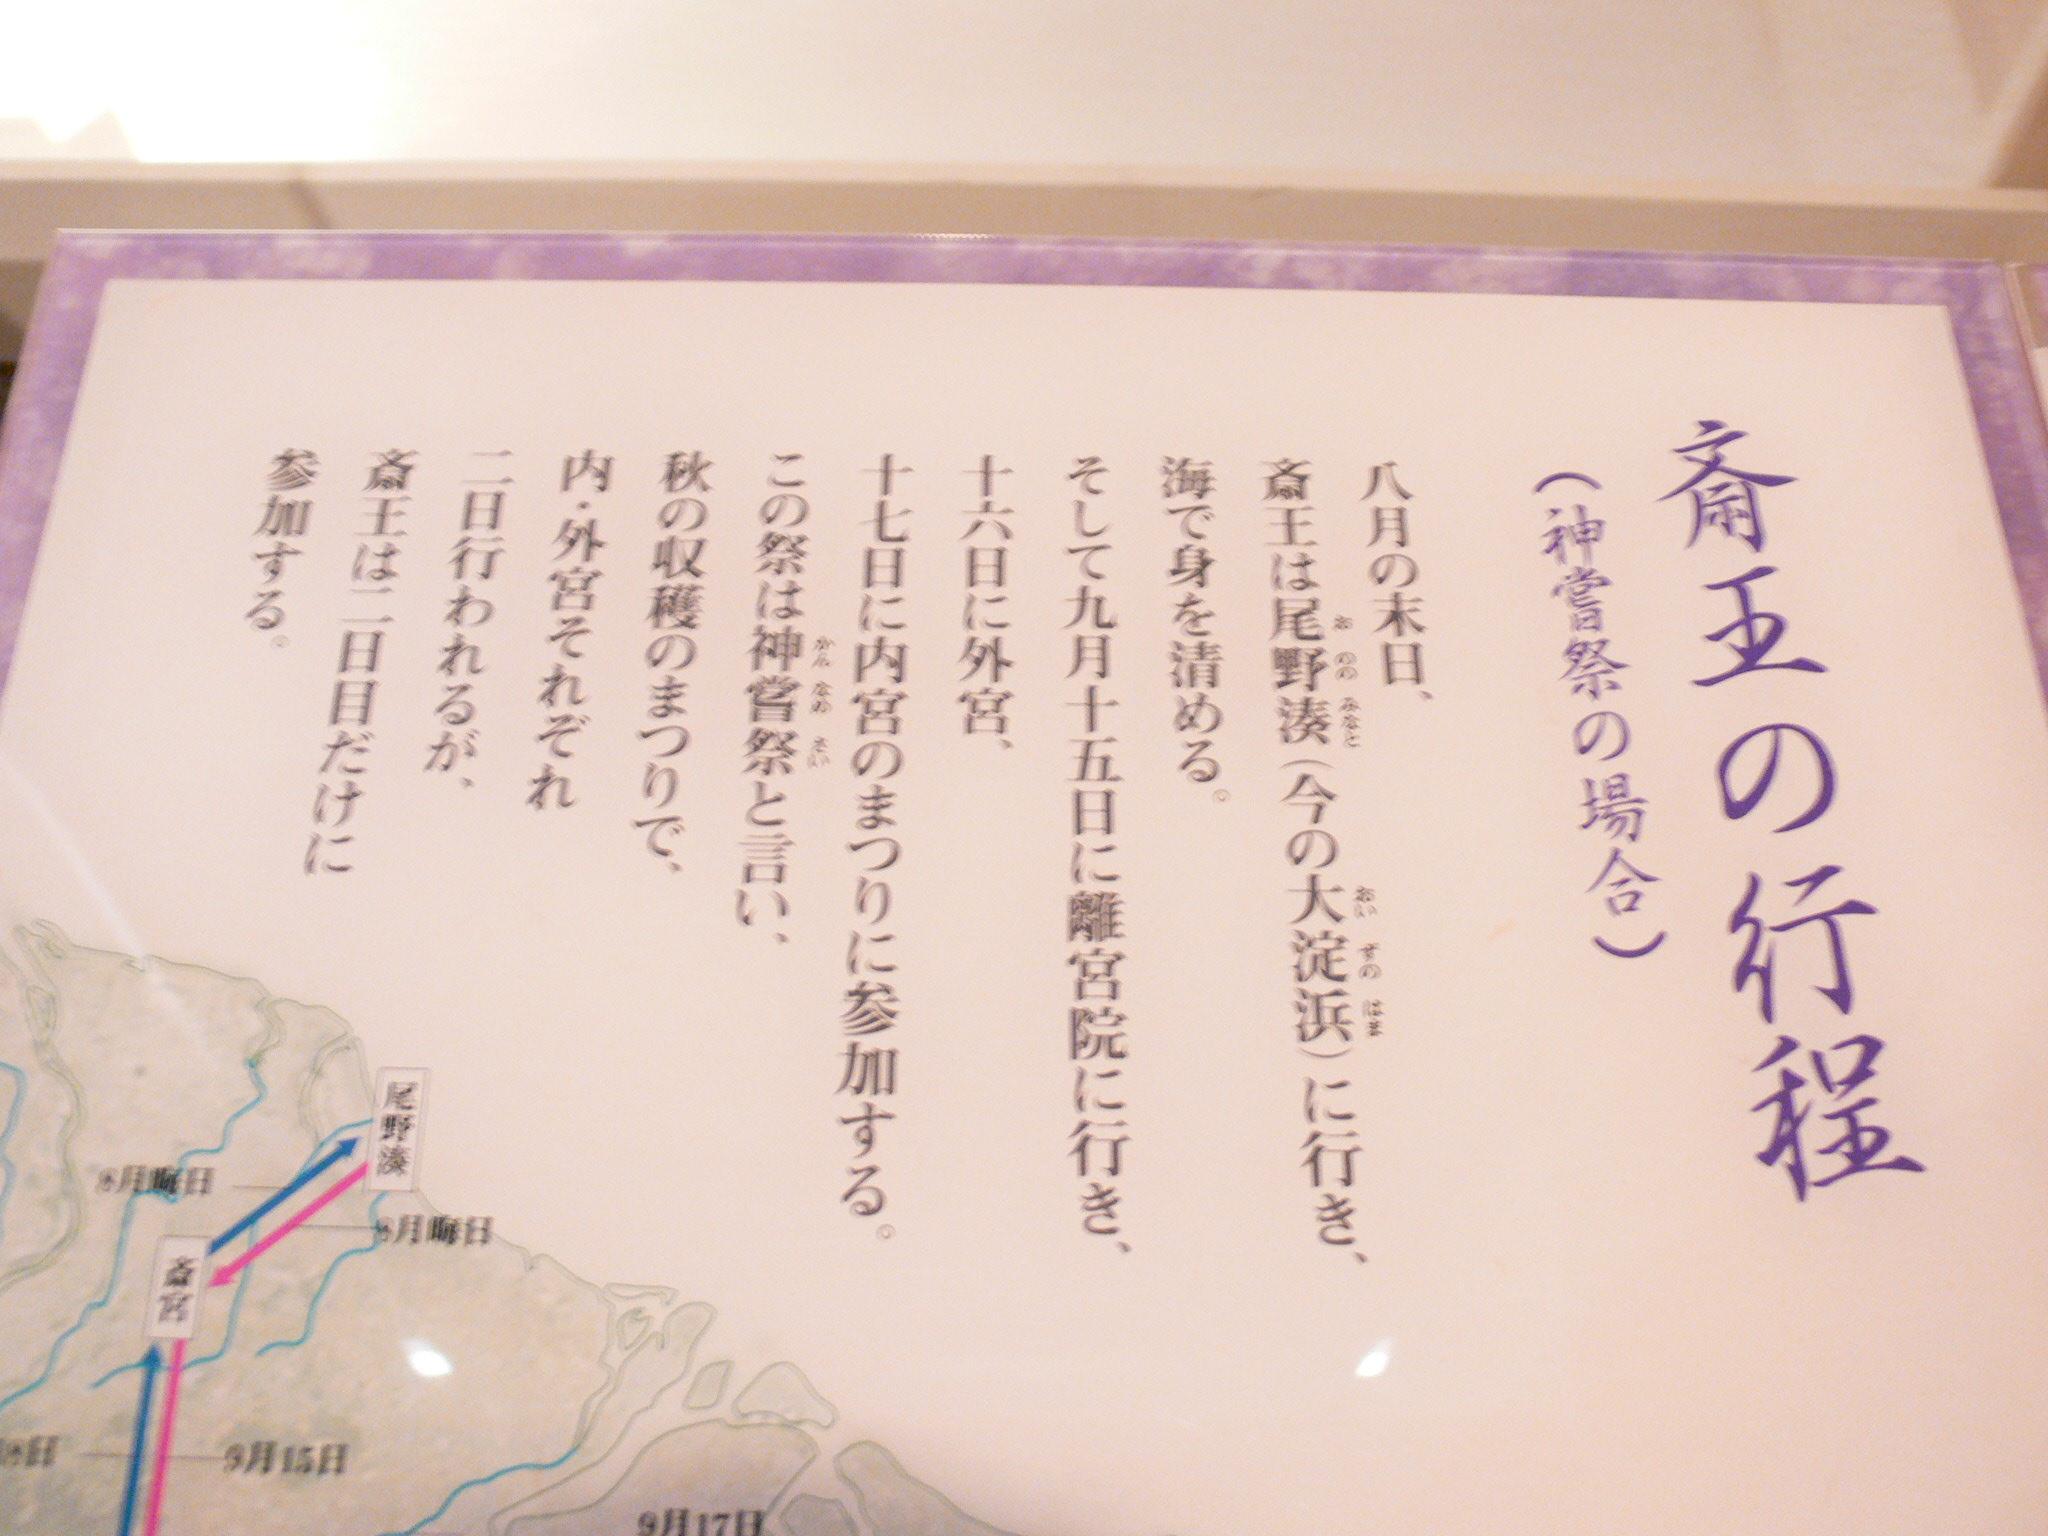 斎王の行程
（神嘗祭の場合）
八月の末日、
斎王は尾野湊（今の大淀浜）に行き、
海で身を清める。
そして九月十五日に離宮院に行き、
十六日に外宮、
十七日に内宮のまつりに参加する。
この祭は神嘗祭と言い、
秋の収穫のまつりで、
内・外宮それぞれ
二日行われるが、
斎王は二日目だけに
参加する。
お のの みなと
おい ずの はま
かん なめ さい
尾野湊
8月晦日
8月晦日
斎宮
9月15日
9月17日